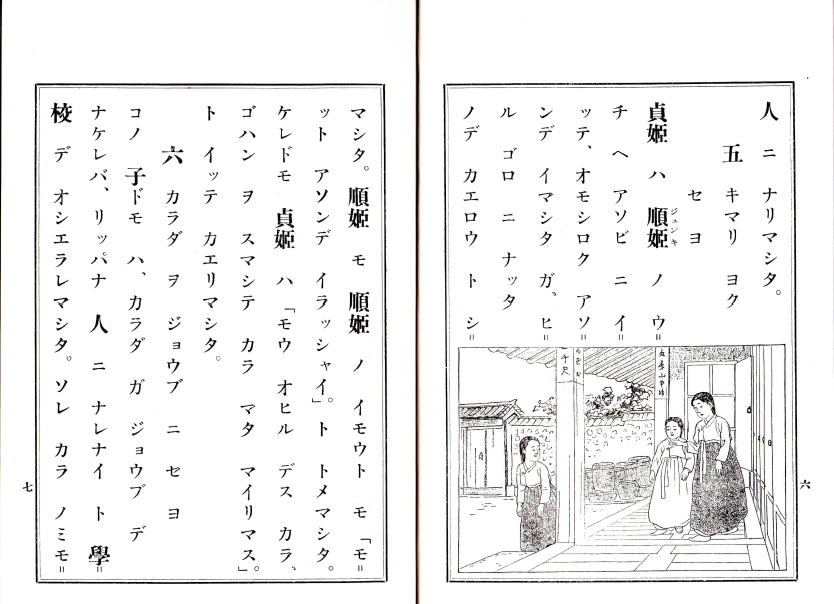 人 ニ ナリマシタ。
五 キマリ ヨク
セ ヨ
貞姬 ハ 順姬 ノ ウ=
ジュンキ
チ ヘ アソビ ニ イ=
ッテ、オモシロク アソ=
ンデ イマシタ ガ、ヒ=
ル ゴロ ニ ナッタ
ノデ カエロウ ト シ=
六
マシタ。順姬 モ 順姬 ノ イモウト モ「モ=
ット アソンデ イラッシャイ」。ト トメマシタ。
ケレドモ 貞姬 ハ「モウ オヒル デス カラ、
ゴハン ヲ スマシテ カラ マタ マイリマス」。
ト イッテ カエリマシタ。
六 カラダ ヲ ジョウブ ニ セ ヨ
コノ 子ドモ ハ、カラダ ガ ジョウブ デ
ナケレバ、リッパナ 人 ニ ナレナイ ト 學=
校 デ オシエラレマシタ。ソレ カラ ノミモ=
七